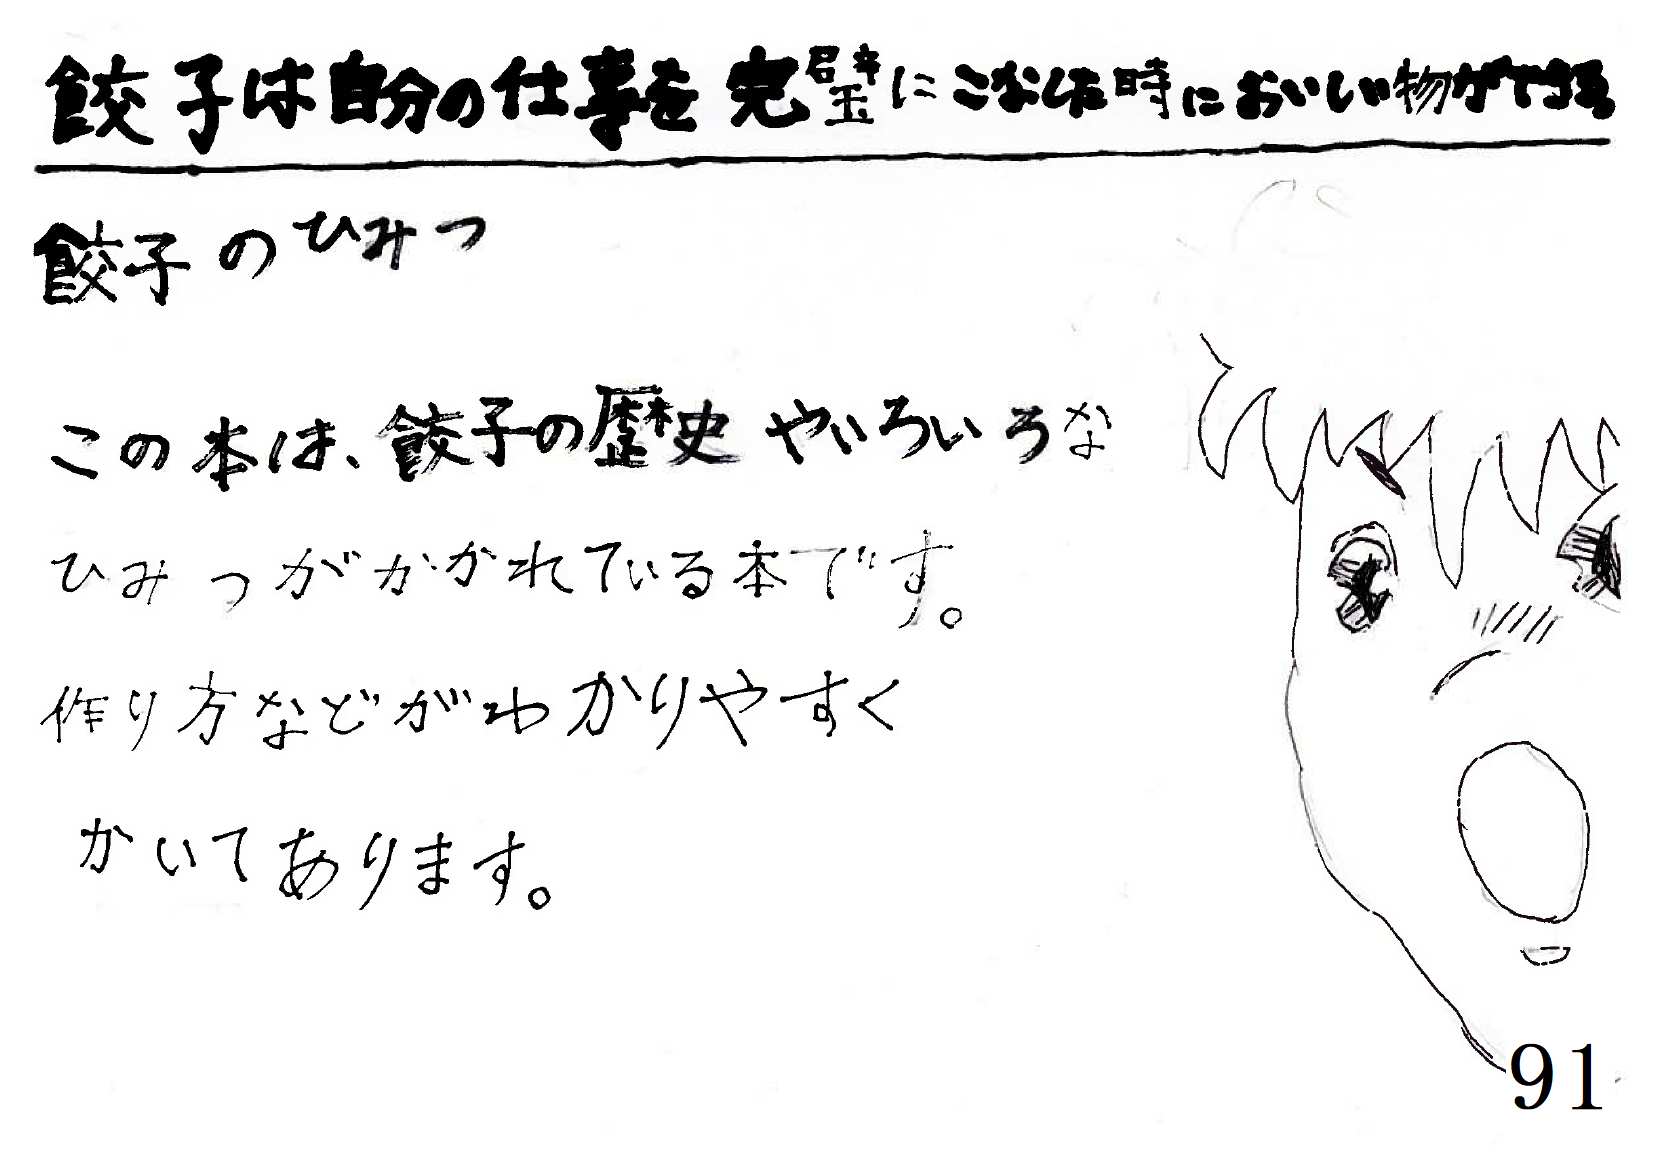 餃子は自分の仕事を完璧にこなした時においしい物ができる
餃子のひみつ
この本は、餃子の歴史やいろいろな
ひみつがかかれている本です。
作り方などがわかりやすく
かいてあります。
91